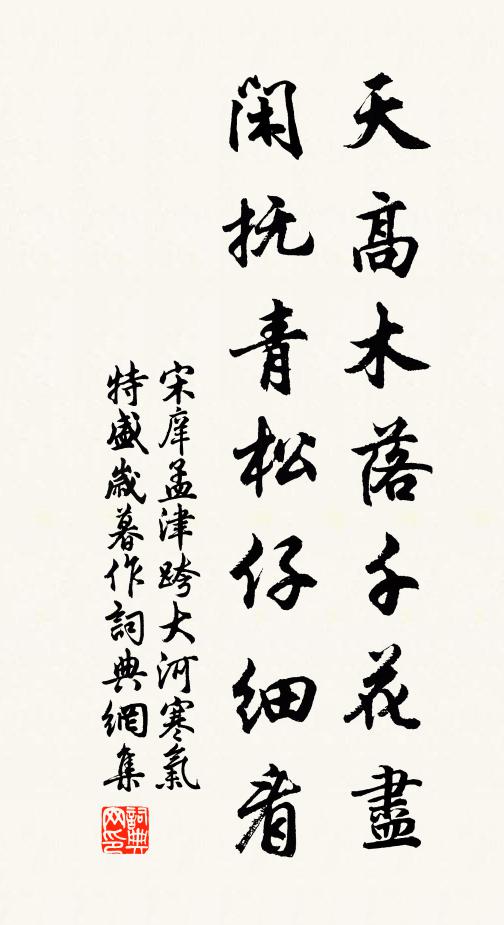 天高木落千花盡
閑抚青松仔細看
宋庠孟津跨大河寒氣
特盛歲暮作詞典網集
詞典网印